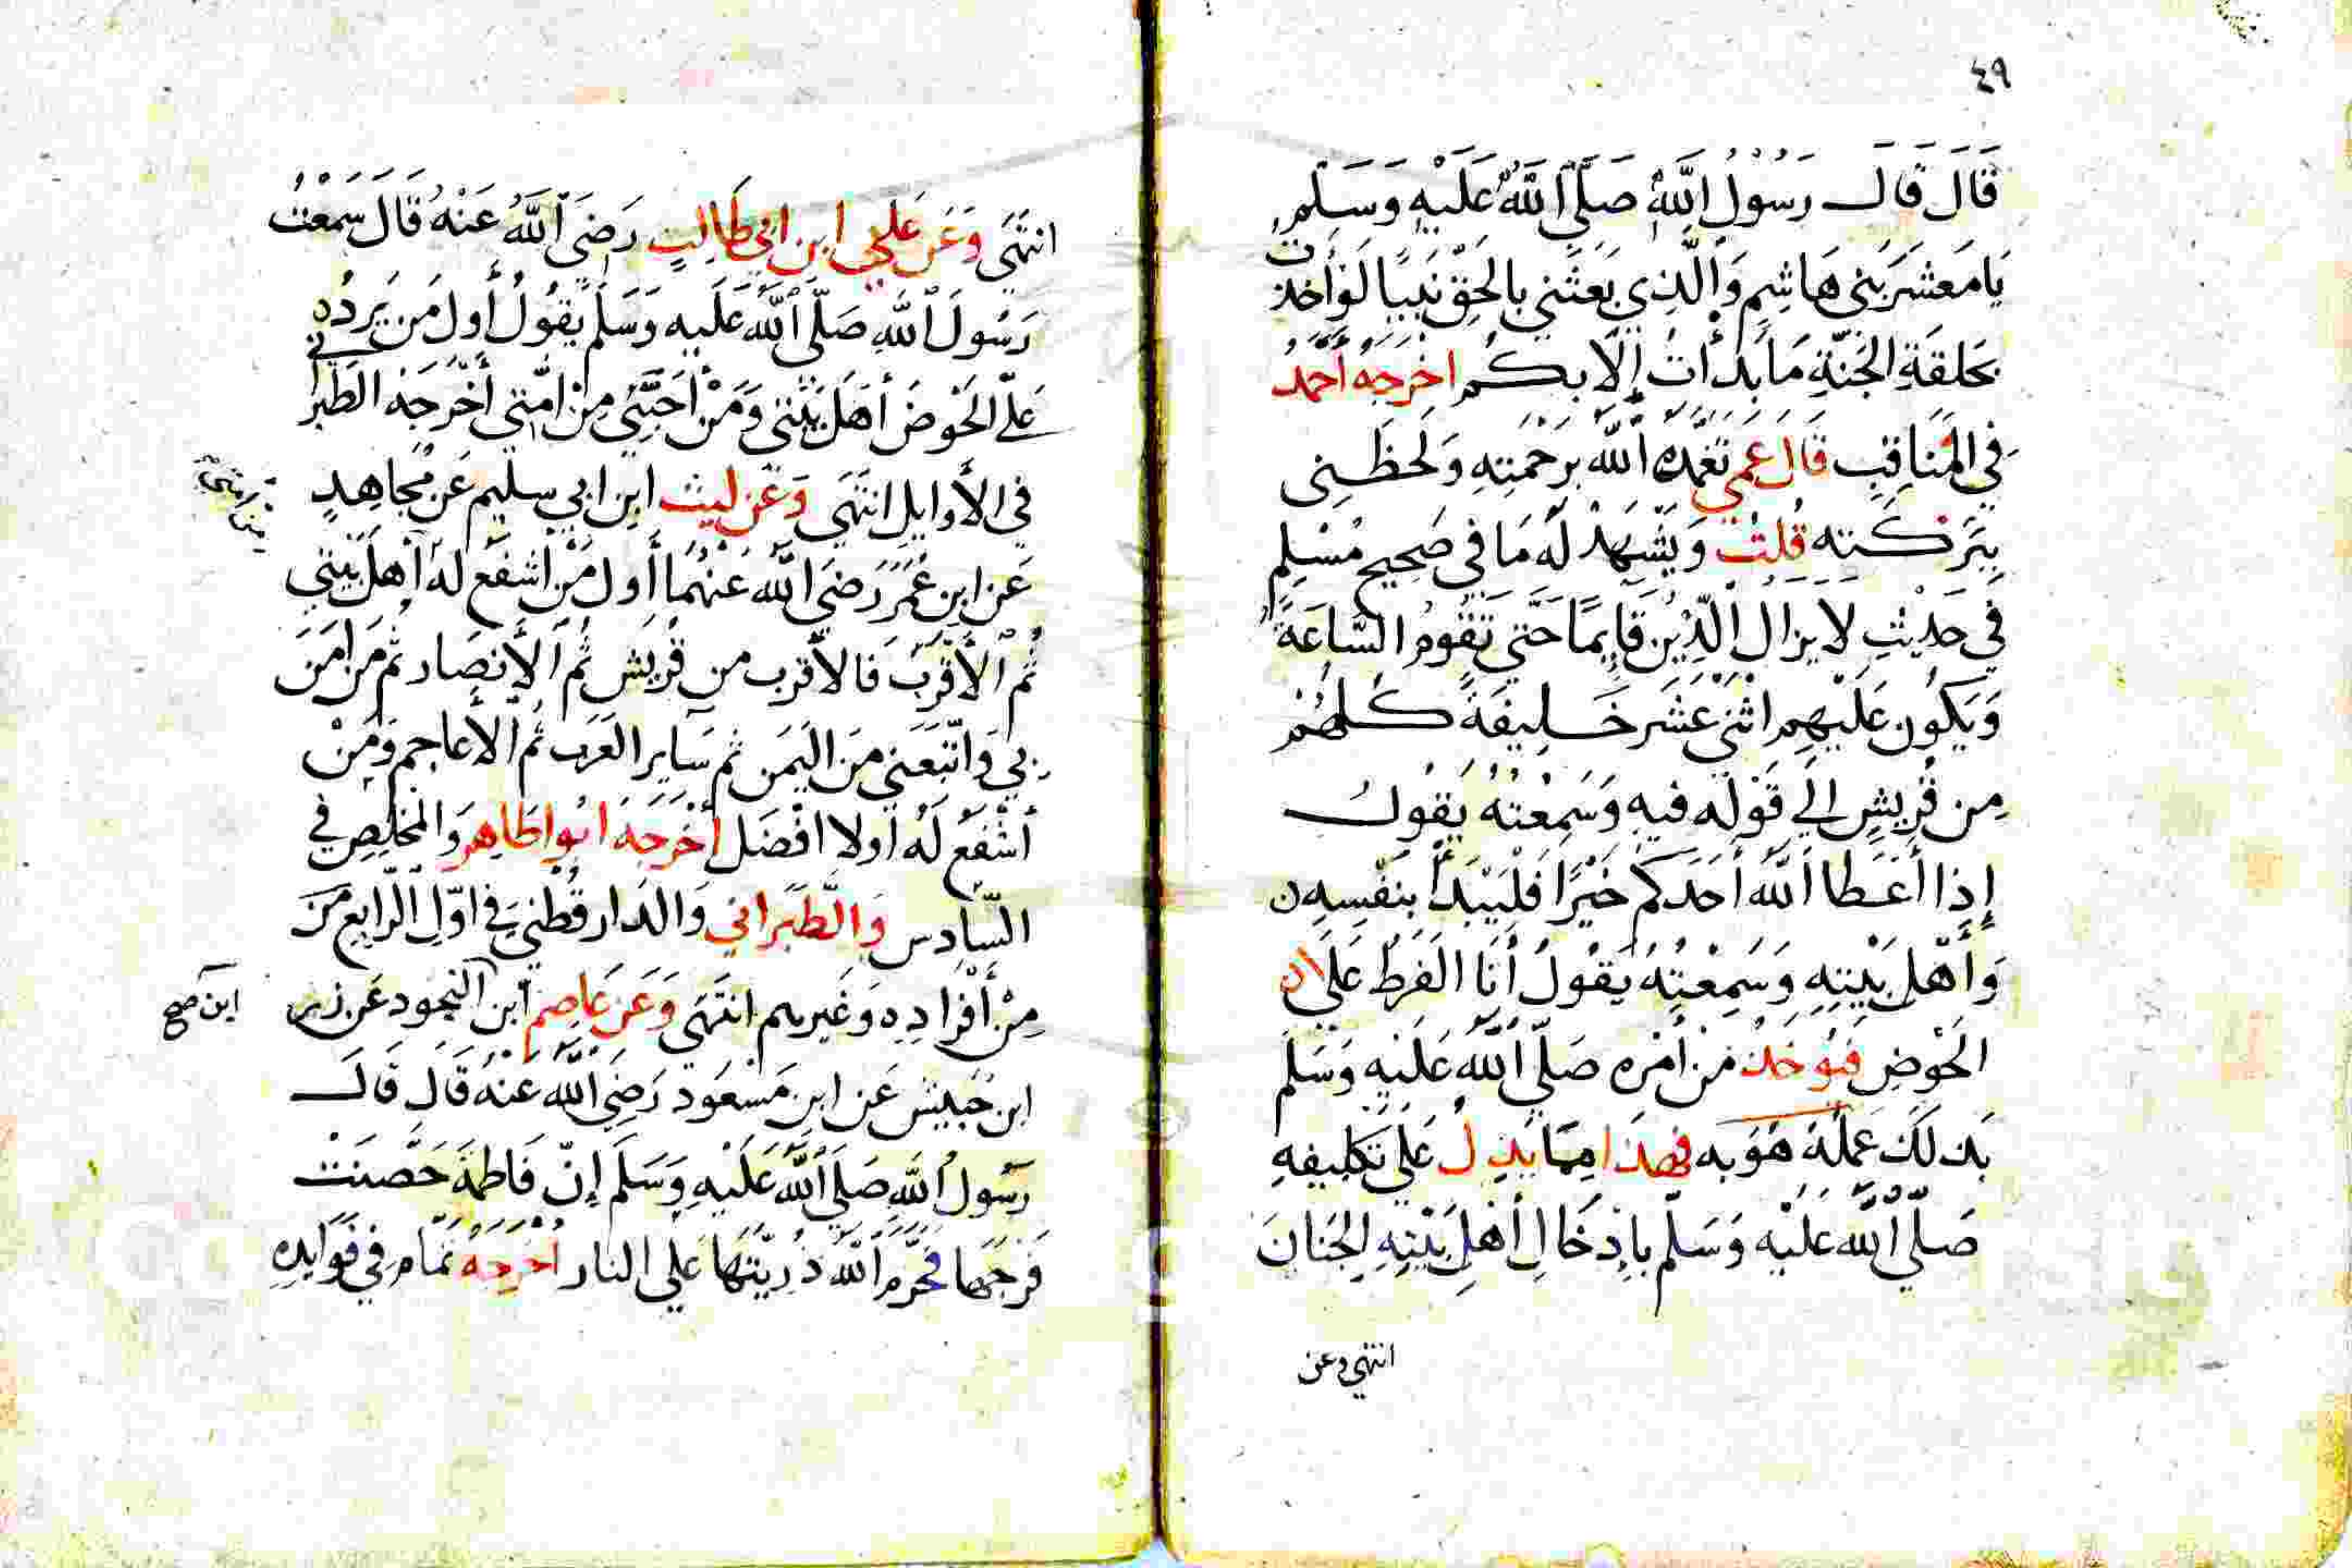 ٤٩
قَالَ قَالَ رَسُولُ اللَّهِ صَلَّى اللَّهُ عَلَيْهِ وَسَلَّم
يَا مَعْشَرَ بَنِي هَاشِمٍ وَالَّذِي بَعَثَنِي بِالحَقِّ نَبِيًّا لَوْ أَخَذْتُ
بِحَلقَةِ الجَنَّةِ مَا بَدَأتُ إِلَّا بِكُم اخْرَجَهُ أَحْمَدُ
فِي المَنَاقِبِ قَالَ عَمِّي تَغَمَّدَهُ اللَّهُ بِرَحْمَتِهِ وَلَحَظَنِي
بِبَرَكَتِهِ قُلتُ وَيَشْهَدُ لَهُ مَا فِي صَحِيحِ مُسْلِمٍ
فِي حَدِيْثِ لَا يَزَالُ الدِّيْنُ قَايِمًا حَتَّى تَقُومُ السَّاعَةُ
وَيَكُون عَلَيْهِم اثْنَي عَشَر خَلِيفَةً كُلهُمْ
مِن قُرَيْشٍ الَى قَوْلِهِ فيهِ وَسَمِعْتُهُ يَقُولُ
إِذَا أَعْطَا اللَّهُ أَحَدَكُم خَيْرًا فَلْيَبْدَأ بِنَفْسِهِ
وَأَهْلِ بَيْتِهِ وَسَمِعْتُهُ يَقُولُ أَنَا الفَرَطُ عَلَى
الحَوْضِ فَيُوخَذُ مِنْ أَمْرِهِ صَلَّى اللَّهُ عَلَيْهِ وَسَلَّمَ
بِذلَكَ عَمَلَهُ هُوَ بِهِ فهَذَا مِمَّا يَدِلُّ عَلَى تَكْلِيفِهِ
صَلَّى اللَّهُ عَلَيْهِ وَسَلَّم بِإِدْخَالِ أَهْلِ بَيْتِهِ الجِنَانَ
انتهى وعن
انتَهَى وَعَن عَلِيّ ابن ابي طَالِبٍ رَضِيَ اللَّهُ عَنْهُ قَالَ سَمِعْتُ
رَسُولَ اللَّهِ صَلَّى اللَّهُ عَلَيهِ وَسَلَّم يَقُولُ أَوَلُ مَن يَرِدُ
عَلَيَّ الحَوْضَ أَهْلَ بَيْتِي وَمَنْ أَحَبَّنِي مِنْ امَّتِي أَخْرَجَهُ الطَبَرَاني
في الأَوَايِلِ انتَهَى وَعَن لَيث ابن ابي سليم عَن مُجَاهِدٍ
عَن ابن عُمَرَ رَضِيَ اللَّهُ عَنْهُمَا أَول مَنْ اشْفَعُ لَهُ أهْلَ بَيْتِي
ثُمَ الأَقْرَبَ فَالأَقرَب من قُرَيْشٍ ثُمَ الأَنصَار ثُم مَن امَنَ
بِي وَاتَّبَعَنِي مِنَ اليَمَن ثم سَايِر العَرَب ثُم الأَعَاجِم وَمِنْ
أَشْفَعُ لَهُ أولا افْضَل أَخْرَجَهُ ابُوا طَاهِر وَالمُخَلِّص فِي
السَّادِس وَالطَبَرَانِي وَالدَار قُطنِي فِي اوّلِ الرَّابِع مِنَ
مِنْ أَفْرَادِهِ وَغَيرهم انتَهَى وَعَن عَاصِم ابن النَّجُود عَن زر
ابن صح
ابن حُبَيْش عَن ابن مَسْعَود رَضِيَ اللَّهُ عَنْهُ قَالَ قَالَ
رَسُولُ اللَّهِ صَلَّى اللَّهُ عَلَيْهِ وَسَلَّمَ إِنّ فَاطِمَةَ حَصَّنَتْ
فَرْجَهَا فَحَرَّمَ اللَّهُ ذُرِيَّتَهَا عَلَى النار اخْرَجَهُ تَمَّام فِي فَوَايِدِهِ